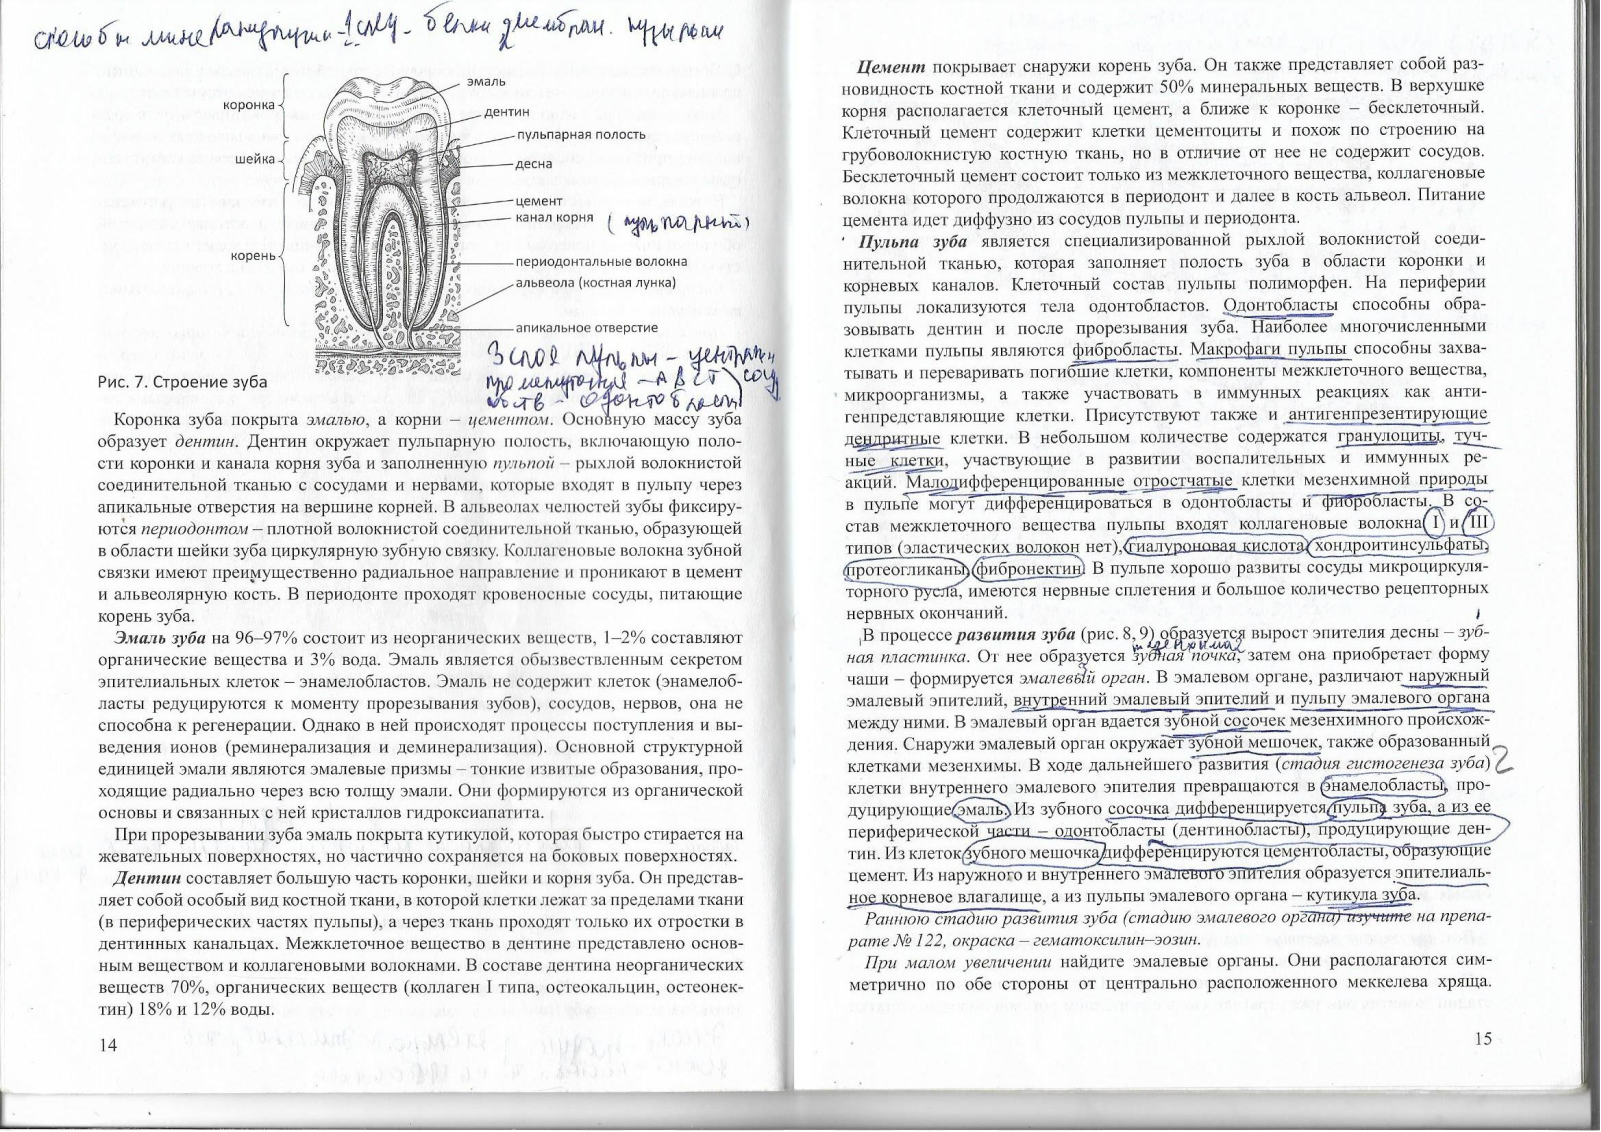 способы минерализации - 1 слу - белки 2 мембран. пузырьки
эмаль
коронка
дентин
пульпарная полость
шейка
десна
цемент
канал корня (пульпарный)
корень
периодонтальные волокна
альвеола (костная лунка)
апикальное отверстие
3 слоя пульпы -
Рис. 7. Строение зуба
Коронка зуба покрыта эмалью, а корни – цементом. Основную массу зуба
образует дентин. Дентин окружает пульпарную полость, включающую поло-
сти коронки и канала корня зуба и заполненную пульпой – рыхлой волокнистой
соединительной тканью с сосудами и нервами, которые входят в пульпу через
апикальные отверстия на вершине корней. В альвеолах челюстей зубы фиксиру-
ются периодонтом – плотной волокнистой соединительной тканью, образующей
в области шейки зуба циркулярную зубную связку. Коллагеновые волокна зубной
связки имеют преимущественно радиальное направление и проникают в цемент
и альвеолярную кость. В периодонте проходят кровеносные сосуды, питающие
корень зуба.
Эмаль зуба на 96–97% состоит из неорганических веществ, 1–2% составляют
органические вещества и 3% вода. Эмаль является обызвествленным секретом
эпителиальных клеток – энамелобластов. Эмаль не содержит клеток (энамелоб-
ласты редуцируются к моменту прорезывания зубов), сосудов, нервов, она не
способна к регенерации. Однако в ней происходят процессы поступления и вы-
ведения ионов (реминерализация и деминерализация). Основной структурной
единицей эмали являются эмалевые призмы – тонкие извитые образования, про-
ходящие радиально через всю толщу эмали. Они формируются из органической
основы и связанных с ней кристаллов гидроксиапатита.
При прорезывании зуба эмаль покрыта кутикулой, которая быстро стирается на
жевательных поверхностях, но частично сохраняется на боковых поверхностях.
Дентин составляет большую часть коронки, шейки и корня зуба. Он представ-
ляет собой особый вид костной ткани, в которой клетки лежат за пределами ткани
(в периферических частях пульпы), а через ткань проходят только их отростки в
дентинных канальцах. Межклеточное вещество в дентине представлено основ-
ным веществом и коллагеновыми волокнами. В составе дентина неорганических
веществ 70%, органических веществ (коллаген I типа, остеокальцин, остеонек-
тин) 18% и 12% воды.
14
Цемент покрывает снаружи корень зуба. Он также представляет собой раз-
новидность костной ткани и содержит 50% минеральных веществ. В верхушке
корня располагается клеточный цемент, а ближе к коронке – бесклеточный.
Клеточный цемент содержит клетки цементоциты и похож по строению на
грубоволокнистую костную ткань, но в отличие от нее не содержит сосудов.
Бесклеточный цемент состоит только из межклеточного вещества, коллагеновые
волокна которого продолжаются в периодонт и далее в кость альвеол. Питание
цемента идет диффузно из сосудов пульпы и периодонта.
Пульпа зуба является специализированной рыхлой волокнистой соеди-
нительной тканью, которая заполняет полость зуба в области коронки и
корневых каналов. Клеточный состав пульпы полиморфен. На периферии
пульпы локализуются тела одонтобластов. Одонтобласты способны обра-
зовывать дентин и после прорезывания зуба. Наиболее многочисленными
клетками пульпы являются фибробласты. Макрофаги пульпы способны захва-
тывать и переваривать погибшие клетки, компоненты межклеточного вещества,
микроорганизмы, а также участвовать в иммунных реакциях как анти-
генпредставляющие клетки. Присутствуют также и антигенпрезентирующие
дендритные клетки. В небольшом количестве содержатся гранулоциты, туч-
ные клетки, участвующие в развитии воспалительных и иммунных ре-
акций. Малодифференцированные отростчатые клетки мезенхимной природы
в пульпе могут дифференцироваться в одонтобласты и фибробласты. В со-
став межклеточного вещества пульпы входят коллагеновые волокна I и III
типов (эластических волокон нет), гиалуроновая кислота, хондроитинсульфаты,
протеогликаны, фибронектин. В пульпе хорошо развиты сосуды микроциркуля-
торного русла, имеются нервные сплетения и большое количество рецепторных
нервных окончаний.
В процессе развития зуба (рис. 8, 9) образуется вырост эпителия десны – зуб-
ная пластинка. От нее образуется зубная почка, затем она приобретает форму
чаши – формируется эмалевый орган. В эмалевом органе, различают наружный
эмалевый эпителий, внутренний эмалевый эпителий и пульпу эмалевого органа
между ними. В эмалевый орган вдается зубной сосочек мезенхимного происхож-
дения. Снаружи эмалевый орган окружает зубной мешочек, также образованный
клетками мезенхимы. В ходе дальнейшего развития (стадия гистогенеза зуба) 2
клетки внутреннего эмалевого эпителия превращаются в энамелобласты, про-
дуцирующие эмаль. Из зубного сосочка дифференцируется пульпа зуба, а из ее
периферической части – одонтобласты (дентинобласты), продуцирующие ден-
тин. Из клеток зубного мешочка дифференцируются цементобласты, образующие
цемент. Из наружного и внутреннего эмалевого эпителия образуется эпителиаль-
ное корневое влагалище, а из пульпы эмалевого органа – кутикула зуба.
Раннюю стадию развития зуба (стадию эмалевого органа) изучите на препа-
рате № 122, окраска – гематоксилин–эозин.
При малом увеличении найдите эмалевые органы. Они располагаются сим-
метрично по обе стороны от центрально расположенного меккелева хряща.
15